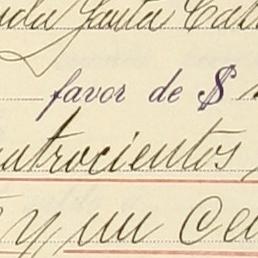 Santa Cat
favor de $
atrocientos
y un ce